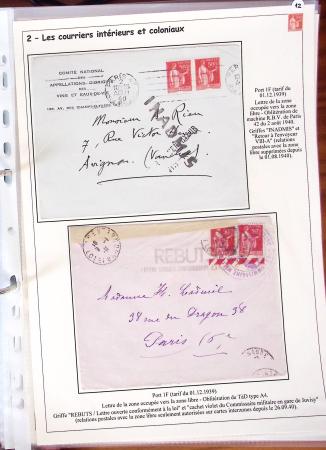 12
2 - Les courriers intérieurs et coloniaux
COMITÉ NATIONAL
DES
APPELLATIONS D'ORIGINE
DES
VINS ET EAUX-DE-VIE
Monsieur H. Rieu
7, Rue Victor
Avignon
INADMIS
Port 1F (tarif du
01.12.1939)
Lettre de la zone
occupée vers la zone
libre - Oblitération de
machine R.B.V. de Paris
42 du 2 août 1940.
Griffes "INADMIS" et
"Retour à l'envoyeur
VIII-A" (relations
postales avec la zone
libre supprimées depuis
le 01.08.1940).
REBUTS
Madame H.
38 rue du Dragon 38
Paris 6e
Port 1F (tarif du 01.12.1939)
Lettre de la zone occupée vers la zone libre - Oblitération de TàD type A4.
Griffe "REBUTS / Lettre ouverte conformément à la loi" et "cachet violet du Commissaire militaire en gare de Juvisy"
(relations postales avec la zone libre seulement autorisées sur cartes interzones depuis le 26.09.40).